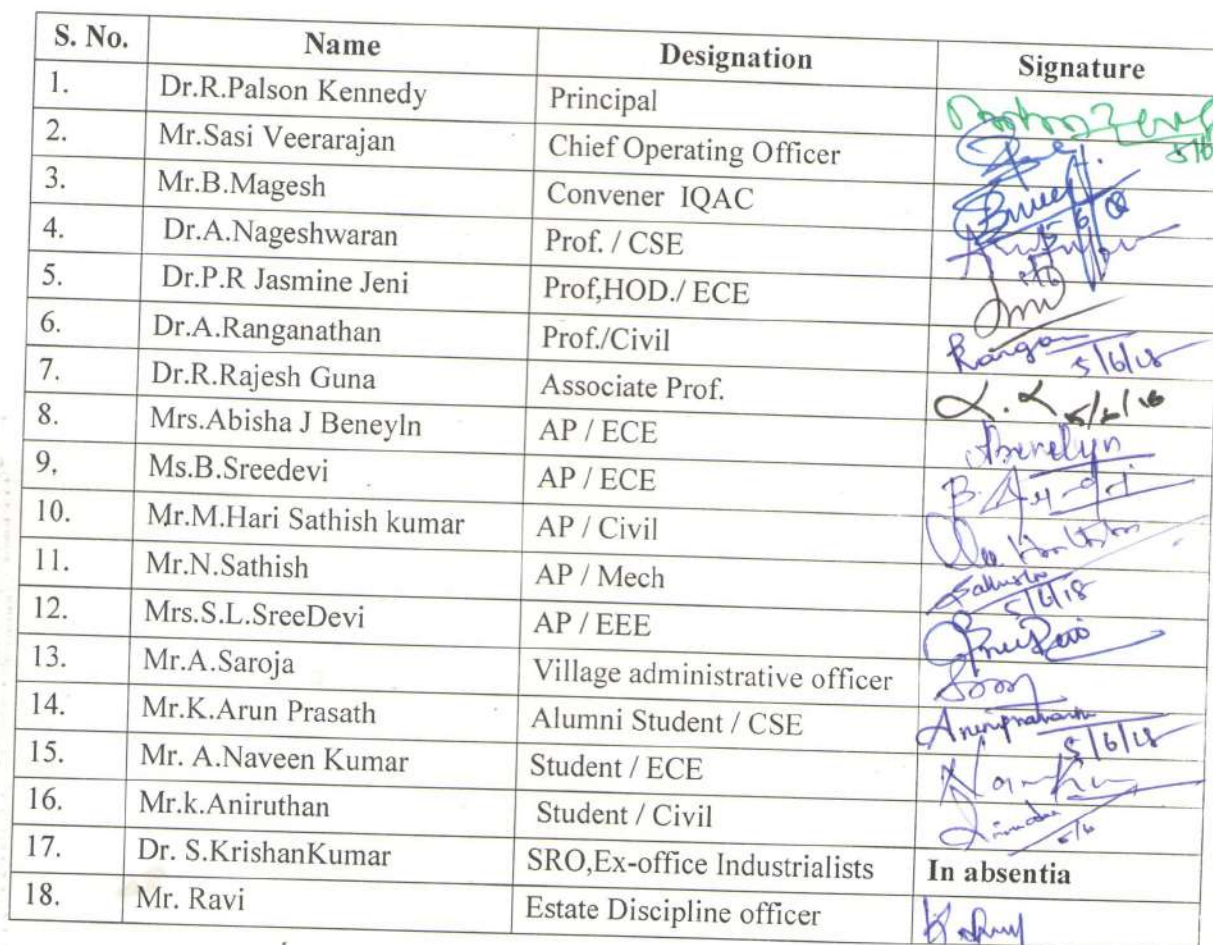 S. No. Name Designation Signature
1. Dr.R.Palson Kennedy Principal
2. Mr.Sasi Veerarajan Chief Operating Officer
3. Mr.B.Magesh Convener IQAC
4. Dr.A.Nageshwaran Prof. / CSE
5. Dr.P.R Jasmine Jeni Prof,HOD./ ECE
6. Dr.A.Ranganathan Prof./Civil 5/6/18
7. Dr.R.Rajesh Guna Associate Prof.
8. Mrs.Abisha J Beneyln AP / ECE
9. Ms.B.Sreedevi AP / ECE
10. Mr.M.Hari Sathish kumar AP / Civil
11. Mr.N.Sathish AP / Mech 5/6/18
12. Mrs.S.L.SreeDevi AP / EEE
13. Mr.A.Saroja Village administrative officer
14. Mr.K.Arun Prasath Alumni Student / CSE 5/6/18
15. Mr. A.Naveen Kumar Student / ECE
16. Mr.k.Aniruthan Student / Civil 5/6
17. Dr. S.KrishanKumar SRO,Ex-office Industrialists In absentia
18. Mr. Ravi Estate Discipline officer